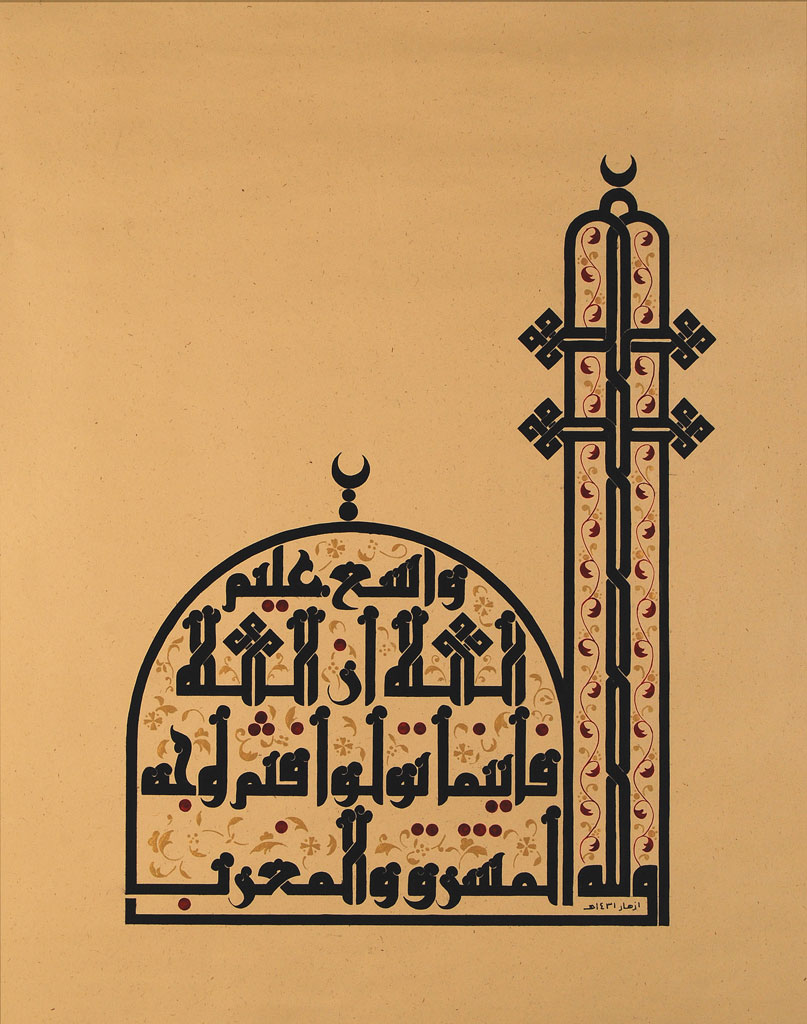 ولله المشرق والمغرب
فاينما تولوا فثم وجه
الله ان الله
واسع عليم
ازهار ١٤٣١هـ